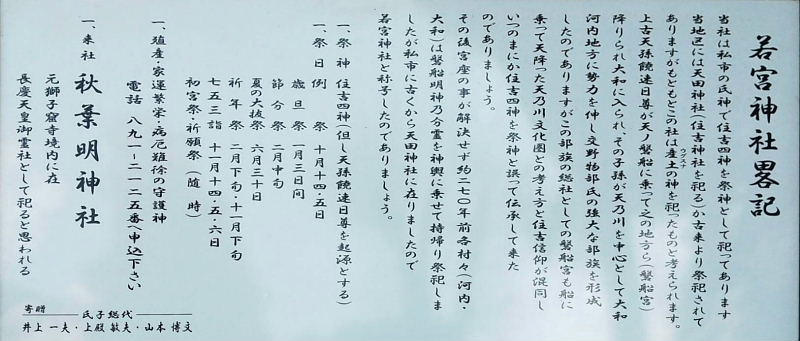 若宮神社畧記
当社は私市の氏神で住吉四神を祭神として祀ってあります
当地区には天田神社(住吉神社を祀る)か古来より祭祀されて
ありますがもともどこの社は産土の神を祀ったものと考えられます。
ウブスナ
上古天孫饒速日尊が天ノ磐船に乗って之の地方ら(磐船宮)
降りられ大和に入られ、その子孫が天乃川を中心として大和
河内地方に勢力を伸し交野物部氏の強大な部族を形成
したのでありますがこの部族の総社としての磐船宮も船に
乗って天降った天乃川文化圏との考え方と住吉信仰が混同し
いつのまにか住吉四神を祭神と誤って伝承して来た
のでありましょう。
その後宮座の事が解決せず約二七〇年前各村々(河内・
大和)は磐船明神乃分霊を神輿に乗せて持帰り祭祀しま
したが私市に古くから天田神社に在りましたので
若宮神社と称号したのでありましょう。
一、祭神 住吉四神・(但し天孫饒速日尊を起源とする)
一、祭日 例祭 十月十四・五日
歳旦祭 一月三日間
節分祭 二月中旬
夏の大祓祭 六月三十日
祈年祭 二月下旬・十一月下旬
七五三詣 十一月十四・五・六日
初宮祭・祈願祭(随時)
一、殖産・家運繁栄・病厄難徐の守護神
電話 八九一-二一二五番へ申込下さい
一、末社 秋葉明神社
元獅子窟寺境内に在
長慶天皇御霊社として祀ると思われる
寄贈 氏子総代
井上一夫・上殿敏夫・山本博文